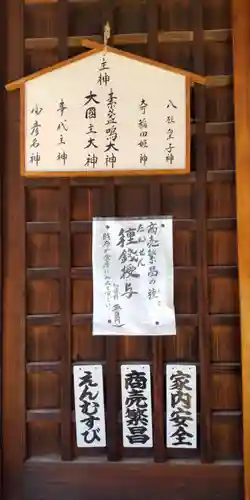 主神
八柱皇子神
奇稲田姫神
素盞嗚大神
大國主大神
事代主神
少彦名神
商売繁昌の種
たねせん
種銭授与
家内安全
商売繁昌
えんむすび